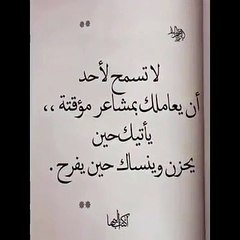 لا تسمح لأحد
أن يعاملك بمشاعر مؤقتة ،،
يأتيك حين
يحزن وينساك حين يفرح .